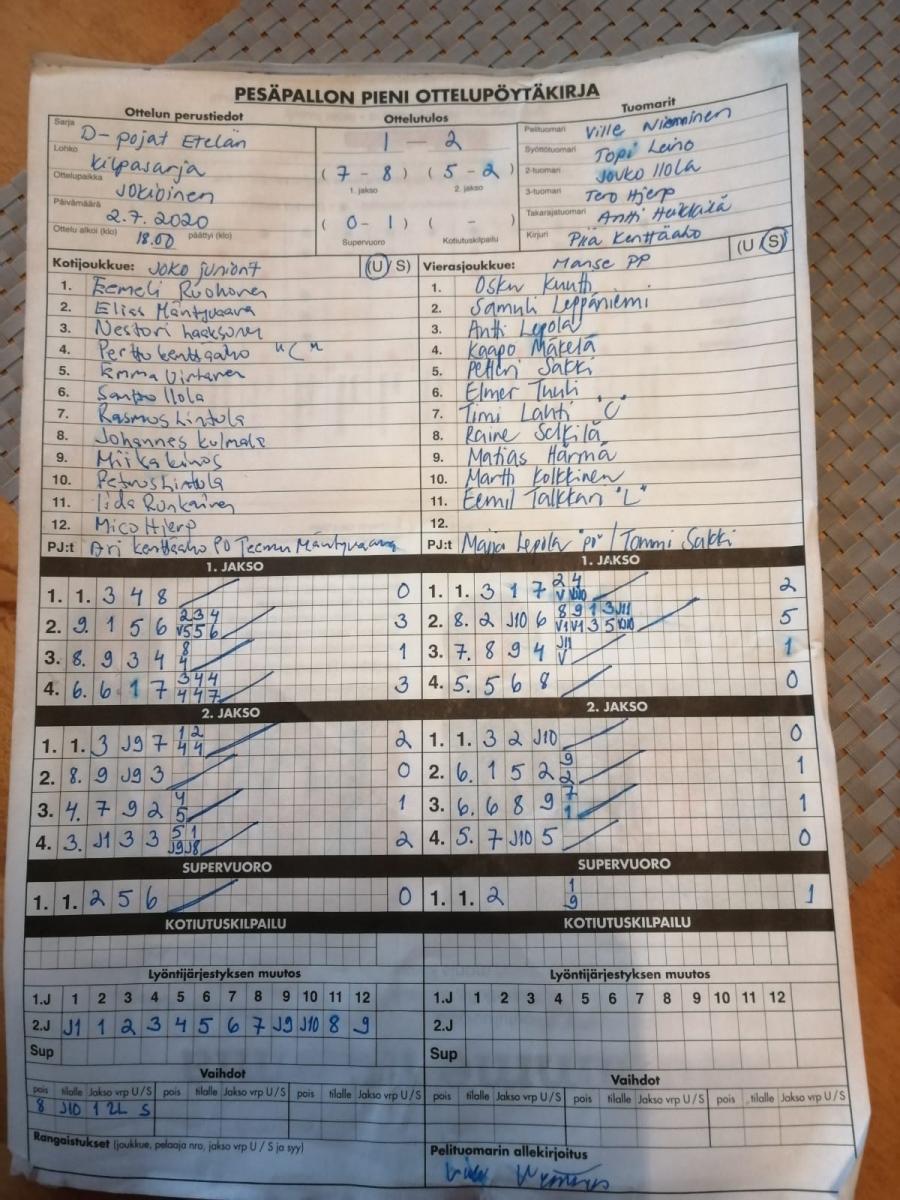 PESÄPALLON PIENI OTTELUPÖYTÄKIRJA
Ottelun perustiedot
Sarja D-pojat Etelän
Lohko Kilpasarja
Ottelupaikka Jokioinen
Päivämäärä 2.7.2020
Ottelu alkoi (klo) 18.00 päättyi (klo)
Ottelutulos
1 — 2
( 7 - 8 ) ( 5 - 2 )
1. jakso 2. jakso
( 0 - 1 ) ( - )
Supervuoro Kotiutuskilpailu
Tuomarit
Pelituomari Ville Nieminen
Syöttötuomari Topi Leino
2-tuomari Jouko Ilola
3-tuomari Tero Hjerp
Takarajatuomari Antti Heikkilä
Kirjuri Piia Kenttäaho
Kotijoukkue: JoKo juniorit (U S)
1. Eemeli Ruohonen
2. Elias Mäntyvaara
3. Nestori Laaksonen
4. Perttu Kenttäaho "C"
5. Emma Virtanen
6. Sampo Ilola
7. Rasmus Lintula
8. Johannes Kulmala
9. Miika Kinos
10. Petrus Lintula
11. Iida Ronkainen
12. Mico Hjerp
PJ:t Ari Kenttäaho PJ Teemu Mäntyvaara
Vierasjoukkue: Manse PP (U S)
1. Osku Kuutti
2. Samuli Leppäniemi
3. Antti Lepola
4. Kaapo Mäkelä
5. Petteri Sakki
6. Elmer Tuuli
7. Timi Lahti "C"
8. Raine Selkilä
9. Matias Härmä
10. Martti Kolkkinen
11. Eemil Talkkari "L"
12.
PJ:t Marja Lepola "PJ" / Tommi Sakki
1. JAKSO
1. 1. 3 4 8 0
2. 9. 1 5 6 2 3 4 V5 5 6 3
3. 8. 9 3 4 8 4 1
4. 6. 6 1 7 3 4 4 4 4 7 3
1. JAKSO
1. 1. 3 1 7 2 4 V VJ10 2
2. 8. 2 J10 6 8 9 1 3 J11 V1 V1 3 5 J10 5
3. 7. 8 9 4 J11 V 1
4. 5. 5 6 8 0
2. JAKSO
1. 1. 3 J9 7 1 2 4 4 2
2. 8. 9 J9 3 0
3. 4. 7 9 2 4 5 1
4. 3. J1 3 3 5 1 J9 J8 2
2. JAKSO
1. 1. 3 2 J10 0
2. 6. 1 5 2 9 2 1
3. 6. 6 8 9 7 1 1
4. 5. 7 J10 5 0
SUPERVUORO
1. 1. 2 5 6 0
SUPERVUORO
1. 1. 2 1 9 1
KOTIUTUSKILPAILU
KOTIUTUSKILPAILU
Lyöntijärjestyksen muutos
1.J 1 2 3 4 5 6 7 8 9 10 11 12
2.J J1 1 2 3 4 5 6 7 J9 J10 8 9
Sup
Lyöntijärjestyksen muutos
1.J 1 2 3 4 5 6 7 8 9 10 11 12
2.J
Sup
Vaihdot
pois tilalle Jakso vrp U / S pois tilalle Jakso vrp U / S pois tilalle Jakso vrp U / S
8 J10 1 2L S
Vaihdot
pois tilalle Jakso vrp U / S pois tilalle Jakso vrp U / S pois tilalle Jakso vrp U / S
Rangaistukset (joukkue, pelaaja nro, jakso vrp U / S ja syy)
Pelituomarin allekirjoitus